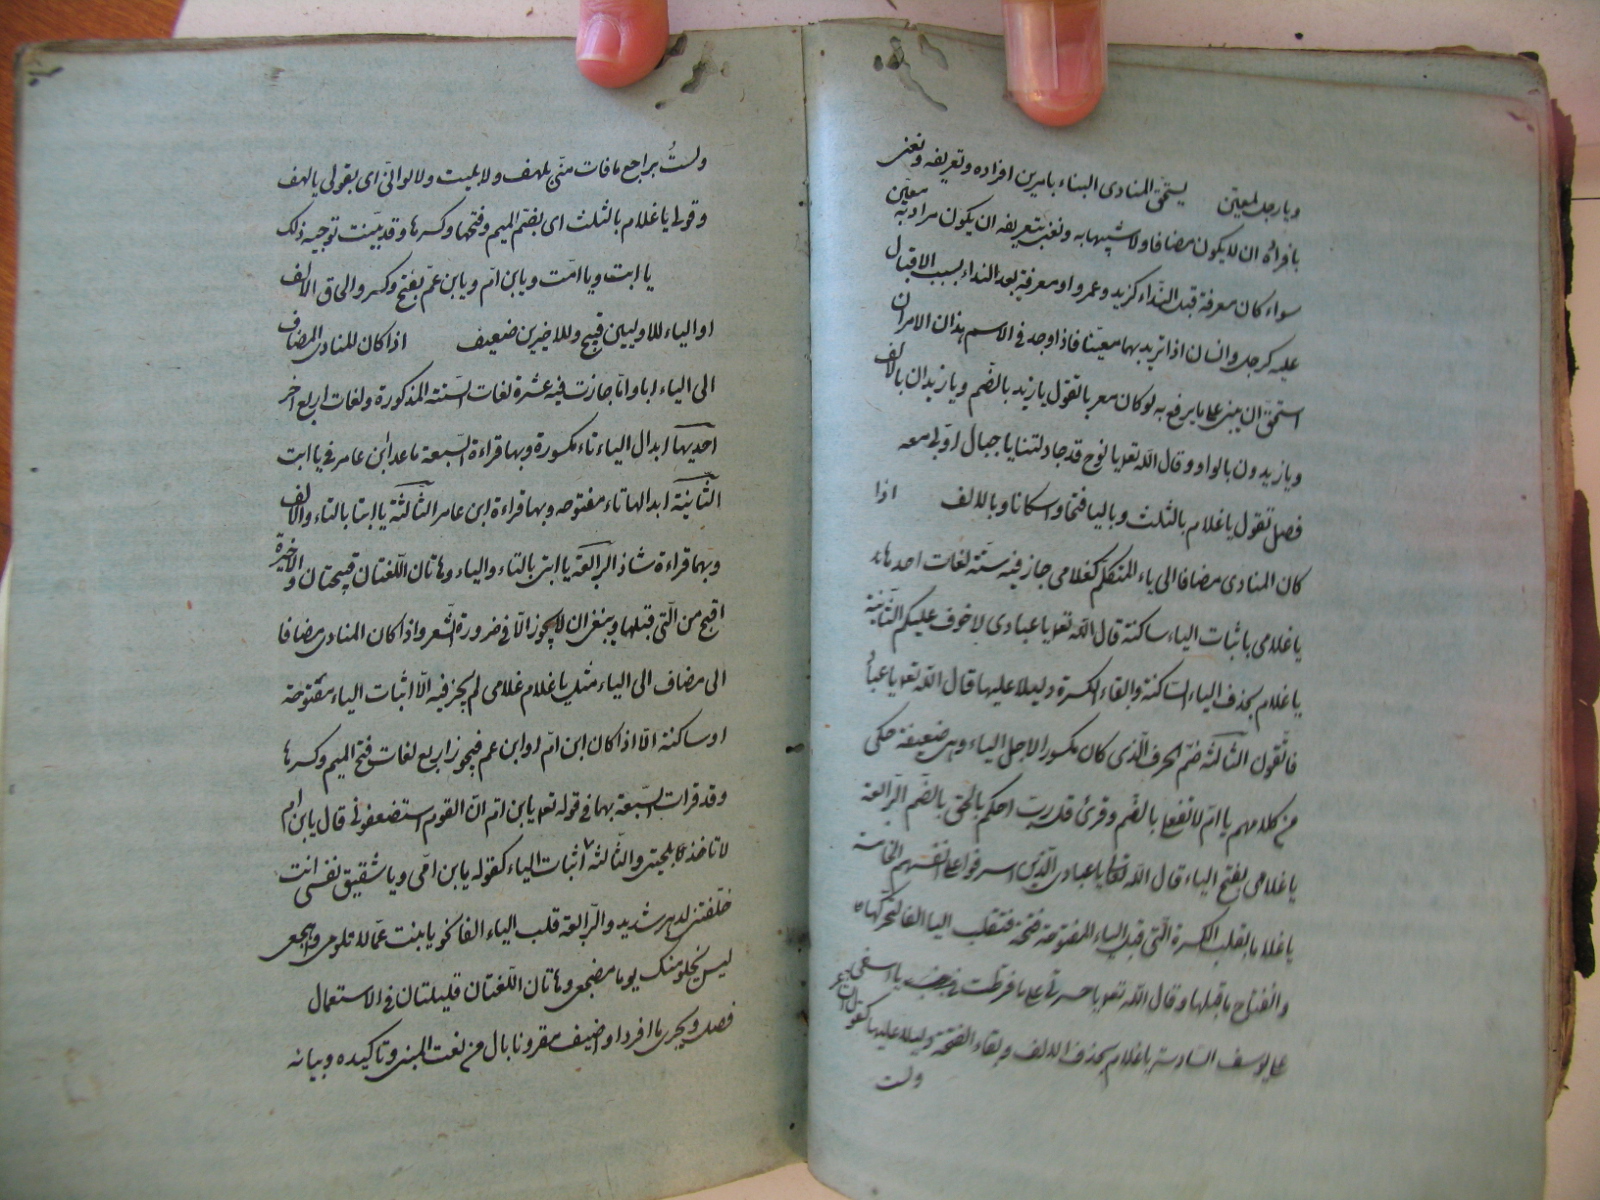 ويا رجل لمعيّن يستحقّ المنادى البناء بامرين افراده وتعريفه ونعنى
بافراده ان لا يكون مضافا ولا شبيها به ونعنى بتعريفه ان يكون مرادا به معيّن
سواء كان معرفة قبل النّداء كزيد وعمرو او معرفة بعد النداء بسبب الاقبال
عليه كرجل وانسان اذا تريد بهما معيّنا فاذا وجد فى الاسم هذان الامران
استحقّ ان يبنى على ما يرفع به لو كان معربا تقول يا زيد بالضّم ويا زيدان بالالف
ويا زيدون بالواو وقال اللّه تعو يا نوح قد جادلتنا يا جبال اوّبى معه
فصل تقول يا غلام بالثلث وباليا فتحا واسكانا وبالالف اذا
كان المنادى مضافا الى ياء المتكلّم كغلامى جاز فيه ستّة لغات احدها
يا غلامى باثبات الياء ساكنة قال اللّه تعو يا عبادى لا خوف عليكم الثّانية
يا غلام بحذف الياء السّاكنة وابقاء الكسرة دليلا عليها قال اللّه تعو يا عباد
فاتّقون الثّالثة ضمّ الحرف الّذى كان مكسورا لاجل الياء وهى ضعيفة حكى
من كلامهم يا امّ لا تفعلى بالضّم وقرئ قل ربّ احكم بالحقّ بالضّم الرّابعة
يا غلامى بفتح الياء قال اللّه تعالى يا عبادى الّذين اسرفوا على انفسهم الخامسة
يا غلاما بقلب الكسرة الّتى قبل الياء المفتوحة فتحة فتقلب اليا الفا لتحرّكها
وانفتاح ما قبلها وقال اللّه تعو يا حسرتى على ما فرّطت فى جنب يا اسفى
على يوسف السّادسة يا غلام بحذف الالف وبقاء الفتحة دليلا عليها كقول الشاعر
ولست
ولستُ براجع ما فات منّى بلهف ولا بليت ولا لوانّى اى بقولى يا لهف
وقولى يا غلام بالثلث اى بضمّ الميم وفتحها وكسرها وقد بيّنت توجيه ذلك
يا ابت ويا امّت ويا بن امّ ويا بن عمّ بفتح وكسر والحاق الالف
او الياء للاوليين قبيح وللاخيرين ضعيف اذا كان المنادى المضاف
الى الياء ابا او امّا جازت فيه عشرة لغات السّتة المذكورة ولغات اربع اخر
احديها ابدال الياء تاء مكسورة وبها قراءة السّبعة ما عدا ابن عامر فى يا ابت
الثّانية ابدالها تاء مفتوحة وبها قراءة ابن عامر الثّالثة يا ابتا بالتاء والالف
وبها قراءة شاذ الرّابعة يا ابتى بالتاء والياء وهاتان اللّغتان قبيحتان والاخيرة
اقبح من الّتى قبلها وينبغى ان لا يجوز الّا فى ضرورة الشّعر واذا كان المنادى مضافا
الى مضاف الى الياء مثل يا غلام غلامى لم يجز فيه الّا اثبات الياء مفتوحة
او ساكنة الّا اذا كان ابن امّ او ابن عم فيجوز اربع لغات فتح الميم وكسرها
وقد قرات السّبعة بهما فى قوله تعو يابن امّ انّ القوم استضعفونى قال يابن ام
لا تاخذ بلحيتى والثّالثة اثبات الياء كقوله يابن امّى ويا شقيق نفسى انت
خلّفتنى لدهر شديد والرّابعة قلب الياء الفا نحو يا بنت عمّا لا تلومى واهجعى
ليس يخلو منك يوما مضجعى وهاتان اللّغتان قليلتان فى الاستعمال
فصل ويجرى ما افرد او اضيف مقرونا بال من نعت المبنى وتاكيده وبيانه